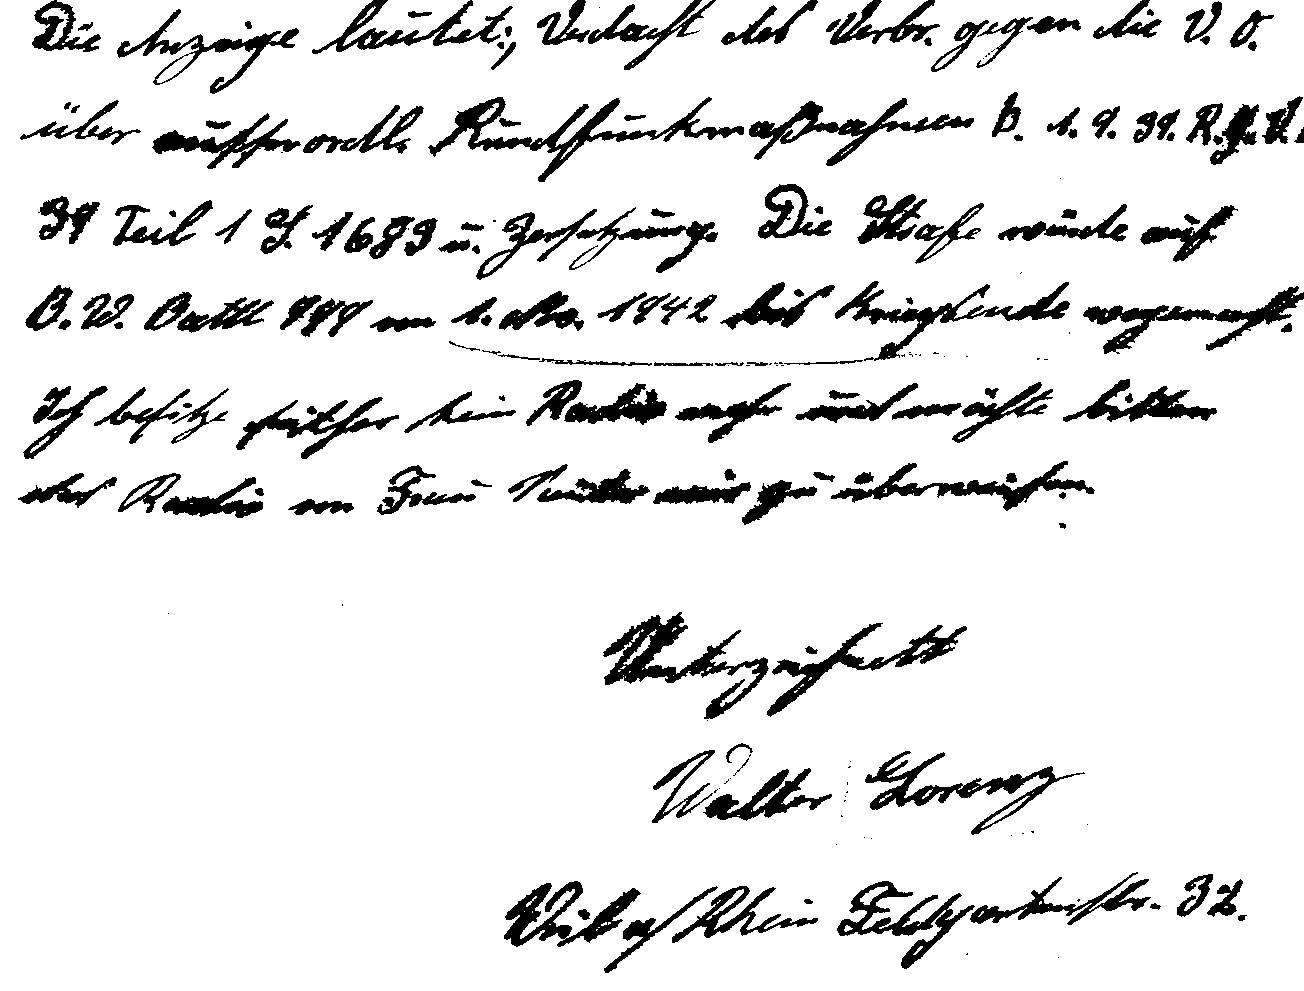 Die Anzeige lautet:, Verdacht des Verbr. gegen die V. O.
über ausserordtl. Rundfunkmaßnahmen v. 1. 9. 39. R.G.B.
39 Teil 1 S. 1683 u. Zersetzung. Die Strafe wurde auf
B.W. Batll 999 von 1. Okto. 1942 bis Kriegsende
Ich besitze seither kein Radio mehr und möchte bitten
das Radio von Frau mir zu überweisen.
Unterzeichnett
Walter Lorenz
Weil a/ Rhein Feldgartenstr. 32.